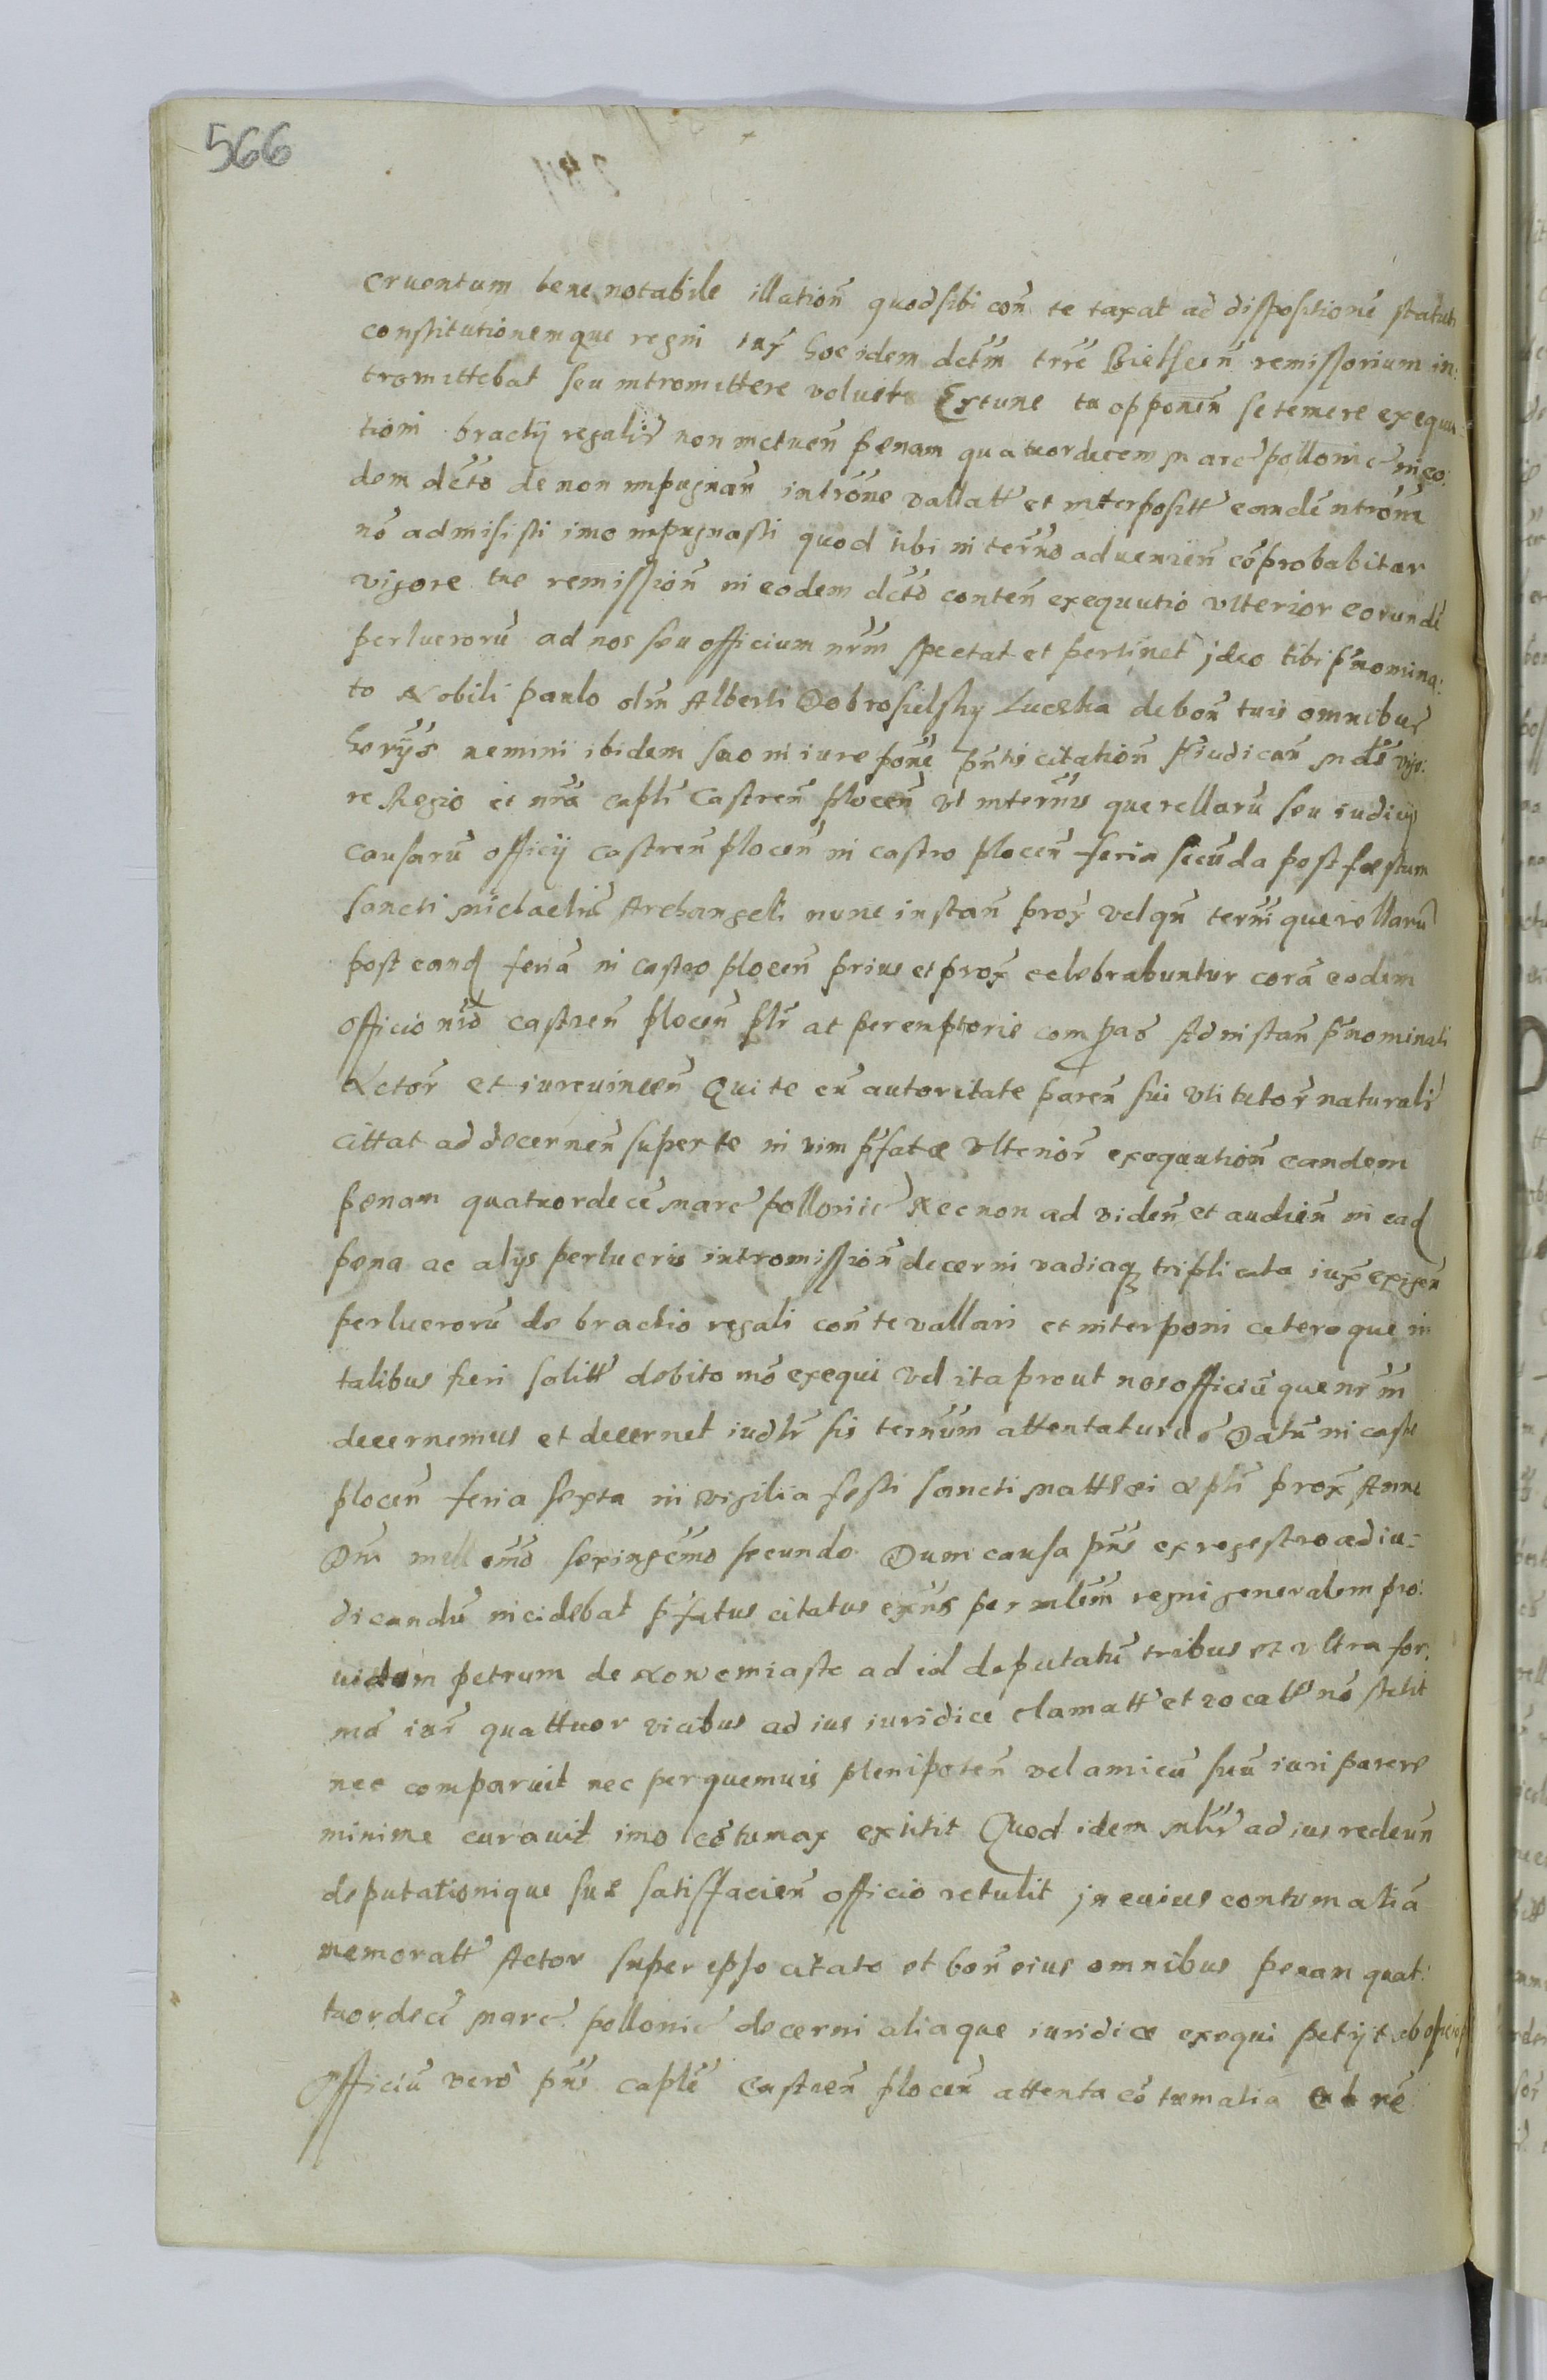 566
cruentum bene notabile illation̄ quod sibi con̄ te taxat ad dispositionē statuti
constitutionemque regni iux hoc idem dectm̄ trrē Bielscen̄ remissorium in:
tromittebat seu intromittere voluit Extunc tu opponen̄ se temere exequu:
tioni brachij regalis non metuen̄ penam quatuordecem marc pollonic in eo:
dem dcto de non impugnan̄ intrōne vallatt et interpositt eandē intrōnē
nō admisisti imo inpugnasti quod tibi in termo advenien̄ cōprobabitur
vigore tue remission̄ in eodem dcto conten̄ exequutio vlterior eorundē
perlucrorū ad nos seu officium nrm̄ spectat et pertinet jdeo tibi p̄nomina:
to Nobili paulo olm̄ Alberti Dobrosielsky Luczka de bon̄ tuis omnibus
remini ibidem seo in iure pōnē pn̄tis citation̄ p̄iudican̄ mdo vigo:
re Regio et nrā capli Castren̄ plocen̄ vt in termis querellarū seu iudicij
causarū officij castren̄ plocen̄ in castro plocen̄ feria secūda post fæstum
sancti Michaelis Archangeli nunc instan̄ prox vel qn̄ termi querellarū
post eand feriā in castro plocen̄ prius et prox celebrabuntur corā eodem
officio nrō castren̄ plocen̄ plr at peremptorie compas Ad instan̄ p̄nominati
Actor et iurevincen̄ Qui te cū autoritate paren̄ sui vti tutor naturalis
cittat ad decernen̄ super te in vim p̄fatæ vlterior exequution̄ eandem
penam quatuordecē marc pollonic Necnon ad viden̄ et audien̄ in ead
pena ac alijs perlucris intromission̄ decerni vadiaq triplicata iux exigen̄
perlucrorū de brachio regali con̄ te vallari et interponi ceteraque in
talibus fieri solitt debito mō exequi vel ita prout nos officiūque nrm̄
decernemus et decernet iudlr sis termum attentaturus Datū in castr
plocen̄ feria sexta in vigilia festi sancti Matthæi apli prox Anno
Dni millemo sexingemo secundo Dum causa pn̄s ex regestro ad iu-
dicandū incidebat p̄fatus citatus exns per mlem regni generalem pro:
uidum petrum de Nowemiasto ad id deputatū tribus et vltra for:
mā iur quattuor vicibus ad ius iuridice clamatt et vocatt nō stetit
nec comparuit nec per quemuis plenipoten̄ vel amicū suū iuri parere
minime curauit imo cōtumax extitit Quod idem mlr ad ius redeun̄
deputationique suæ satisfacien̄ officio retulit jn cuius contumatiā
memoratt Actor super ipso citato et bon̄ eius omnibus penam quat:
tuordecē marc pollonic decerni aliaque iuridice exequi petijt
Officiū vero pn̄s caplē castren̄ plocen̄ attenta cōtumatia